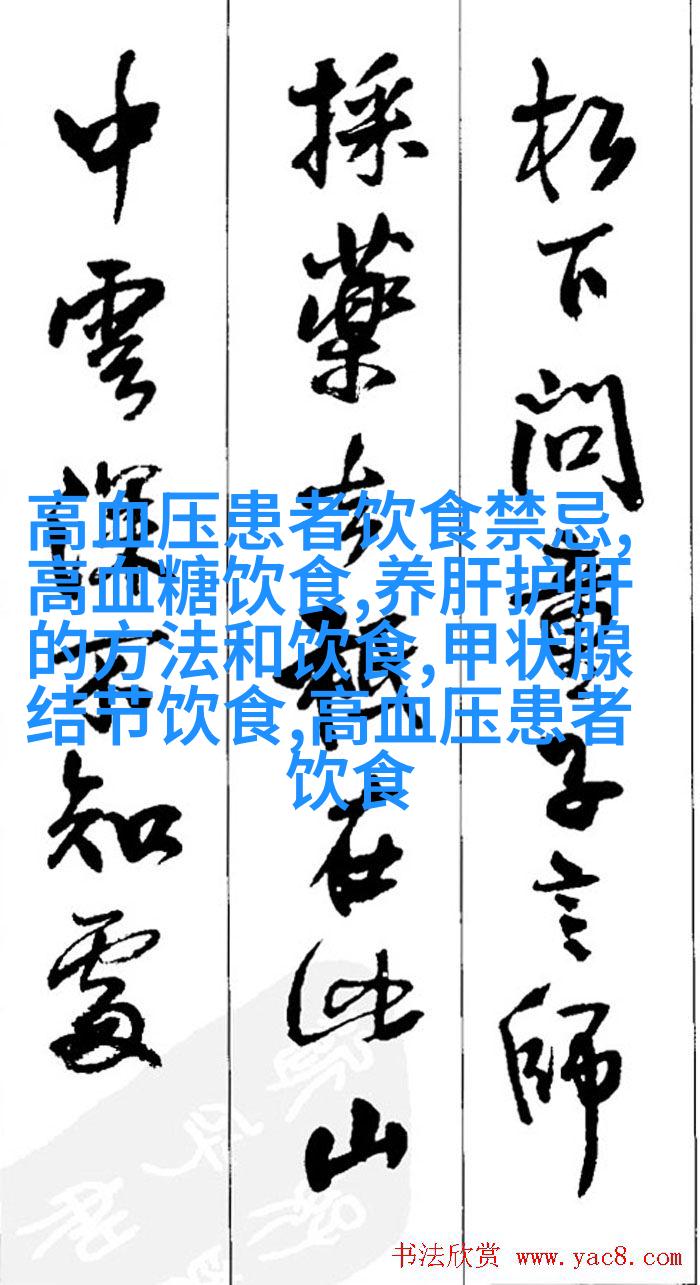 松下問童子言師
採藥去秖在此山
中雲深不知處
高血压患者饮食禁忌,
高血糖饮食,养肝护肝
的方法和饮食,甲状腺
结节饮食,高血压患者
饮食
书法欣赏 www.yac8.com